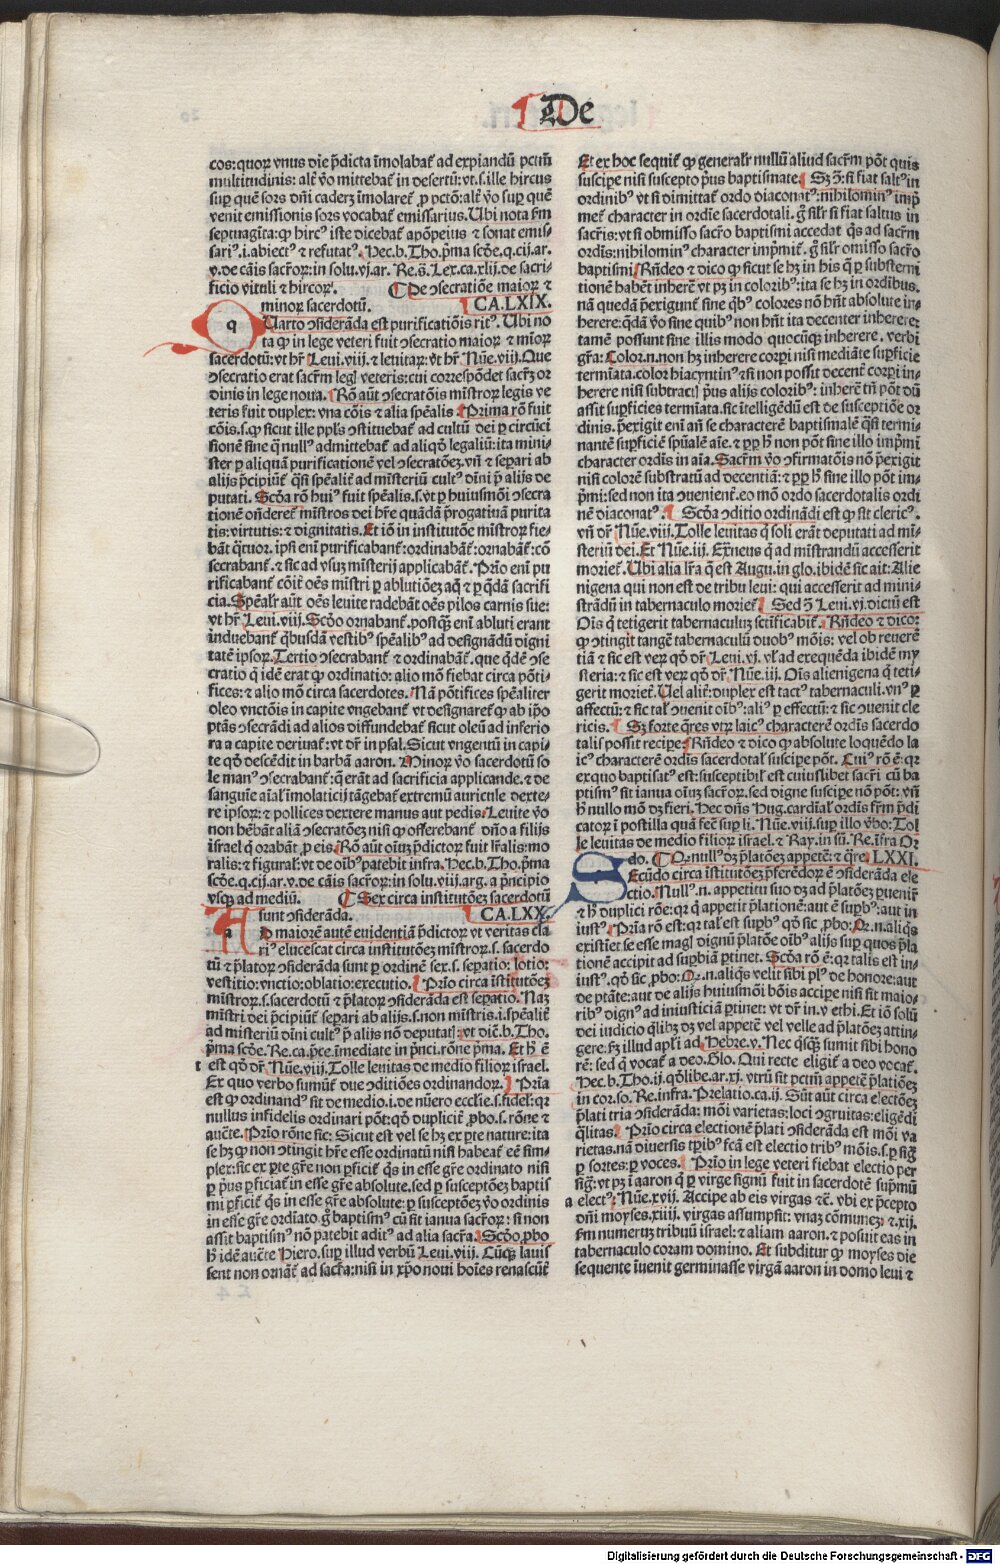 De
cos: quoꝝ vnus die p̄dicta īmolabat̄ ad expiandū pctm̄
multitudinis: alt̄ v̄o mittebat̄ in desertū: vt.s. ille hircus
sup quē sors dn̄i caderꝫ īmolaret̄ ꝓ pctō: alt̄ v̄o sup quē
venit emissionis sors vocabat̄ emissarius. Ubi nota ẜm
septuagīta: ꝙ hircꝰ iste dicebat̄ apōpeius ⁊ sonat emis-
sariꝰ .i. abiectꝰ ⁊ refutatꝰ. Hec.b.Tho.p̄ma scd̄e.q.cij.ar.
v. de cāis sacr̄oꝝ: in solu.vj.ar. Re.s̄. Lex.ca.xlij. de sacri-
ficio vituli ⁊ hircoꝝ. ¶ De ꝯsecratiōe maioꝝ ⁊
minoꝝ sacerdotū. CA.LXIX.
q Uarto ꝯsiderāda est purificatiōis ritꝰ. Ubi no
ta ꝙ in lege veteri fuit ꝯsecratio maioꝝ ⁊ mīoꝝ
sacerdotū: vt hr̄ Leui.viij. ⁊ leuitaꝝ: vt hr̄ Nūe.viij. Que
ꝯsecratio erat sacr̄m legl̄ veteris: cui correspōdet sacr̄ꝫ or
dinis in lege noua. Rō aūt ꝯsecratōis mīstroꝝ legis ve
teris fuit duplex: vna cōis ⁊ alia spēalis. Prima rō fuit
cōis.s. ꝙ sicut ille ppl̄s ꝯstituebat̄ ad cultū dei ꝑ circūci
sionē sine q̄ nullꝰ admittebat̄ ad aliqd̄ legaliū: ita mini-
ster ꝑ aliquā purificationē vel ꝯsecratōeꝫ. vn̄ ⁊ separi ab
alijs p̄cipiūt̄ q̄si spēalit̄ ad mīsteriū cultꝰ dīni p̄ alijs de
putati. Scd̄a rō huiꝰ fuit spēalis.s. vt ꝑ huiusmōi ꝯsecra
tionē on̄deret̄ mīstros dei hr̄e quādā p̄rogatiuā purita
tis: virtutis: ⁊ dignitatis. Et iō in institutōe mīstroꝝ fie-
bāt q̄tuor. ipsi enī purificabant̄: ordinabāt̄: ornabāt̄: cō
secrabant̄ ⁊ sic ad vsuꝫ mīsterij applicabāt̄. Prīo enī pu
rificabant̄ cōit̄ oēs mīstri ꝑ ablutiōeꝫ aq̄ ⁊ ꝑ q̄dā sacrifi
cia. Spēalr̄ aūt oēs leuite radebāt oēs pilos carnis sue:
vt hr̄ Leui.viij. Scd̄o ornabant̄. postq̄ꝫ enī abluti erant
induebant̄ q̄busdā vestibꝰ spēalibꝰ ad designādū digni
tatē ipsoꝝ. Tertio ꝯsecrabant̄ ⁊ ordinabāt̄. que q̄dē ꝯse
cratio q̄ idē erat ꝙ ordinatio: alio mō fiebat circa pōti-
fices: ⁊ alio mō circa sacerdotes. Nā pōtifices spēaliter
oleo vnctōis in capite vngebant̄ vt designaret̄ ꝙ ab ip̄o
ptās ꝯsecrādi ad alios diffundebat̄ sicut oleū ad inferio
ra a capite deriuat̄: vt dr̄ in psal. Sicut vngentū in capi-
te qd̄ descēdit in barbā aaron. Minoꝝ v̄o sacerdotū so
le manꝰ ꝯsecrabant̄: q̄ erāt ad sacrificia applicande. ⁊ de
sanguīe aīal̄ īmolaticij tāgebāt̄ extremū auricule dexte-
re ipsoꝝ: ⁊ pollices dextere manus aut pedis. Leuite v̄o
non hēbāt aliā ꝯsecratōeꝫ nisi ꝙ offerebant̄ dn̄o a filijs
israel q̄ orabāt ꝓ eis. Rō aūt oīuꝫ p̄dictoꝝ fuit lr̄alis: mo
ralis: ⁊ figural̄: vt de oībꝰ patebit infra. Hec.b.Tho.p̄ma
scd̄e.q.cij.ar.v. de cāis sacr̄oꝝ: in solu.viij.arg. a p̄ncipio
vsq̄ ad mediū. ¶ Sex circa institutiōeꝫ sacerdotū
sunt ꝯsiderāda. CA.LXX.
a D maiorē autē euidentiā p̄dictoꝝ vt veritas cla
riꝰ elucescat circa institutōeꝫ mīstroꝝ.s. sacerdo
tū ⁊ p̄latoꝝ ꝯsiderāda sunt ꝑ ordinē sex.s. sepatio: lotio:
vestitio: vnctio: oblatio: executio. Prīo circa īstitutōeꝫ
mīstroꝝ.s. sacerdotū ⁊ p̄latoꝝ ꝯsiderāda est sepatio. Naꝫ
mīstri dei p̄cipiūt̄ separi ab alijs.s. non mīstris.i. spēalit̄
ad misteriū dīni cultꝰ p̄ alijs nō deputati: vt dic̄.b.Tho.
p̄ma scd̄e. Re.ca.p̄ce. īmediate in p̄nci. rōne p̄ma. Et h̄ ē
est qd̄ dr̄ Nūe.viij. Tolle leuitas de medio filioꝝ israel.
Ex quo verbo sumūt̄ due ꝯditiōes ordinandoꝝ. Prīa
est ꝙ ordinandꝰ sit de medio.i. de nūero eccl̄ie.s. fidel̄: qꝛ
nullus infidelis ordinari pōt: qd̄ duplicit̄ ꝓbo.s. rōne ⁊
auc̄te. Prīo rōne sic: Sicut est vel se hꝫ ex ꝑte nature: ita
se hꝫ ꝙ non ꝯtingit hr̄e esse ordinatū nisi habeat̄ eē sim-
plex: sic ex ꝑte gr̄e non ꝑficit̄ q̄s in esse gr̄e ordinato nisi
ꝑ p̄us ꝑficiat̄ in esse gr̄e absolute. sed ꝑ susceptōeꝫ baptis
mi ꝑficit̄ q̄s in esse gr̄e absolute: ꝑ susceptōeꝫ v̄o ordinis
in esse gr̄e ordīato g̊ baptismꝰ cū sit ianua sacr̄oꝝ: si non
assit baptismꝰ nō patebit aditꝰ ad alia sacr̄a. Scd̄o ꝓbo
h̄ idē auc̄te Hiero. sup illud verbū Leui.viij. Cūq̄ꝫ lauis
sent non ornāt̄ ad sacr̄a: nisi in xp̄o noui hoīes renascūt̄
Et ex hoc sequit̄ ꝙ generalr̄ nullū aliud sacr̄m pōt quis
suscipe nisi suscepto p̄us baptismate. Sꝫ ꝯ̄: si fiat saltꝰ in
ordinibꝰ vt si dimittat̄ ordo diaconatꝰ: nihilominꝰ imp̄
met̄ character in ordīe sacerdotali. g̊ sil̄r si fiat saltus in
sacr̄is: vt si obmisso sacr̄o baptismi accedat q̄s ad sacr̄m
ordīs: nihilominꝰ character imp̄mit̄. g̊ sil̄r omisso sacr̄o
baptismi. Rn̄deo ⁊ dico ꝙ sicut se hꝫ in his q̄ ꝑ substerni
tionē habēt inherēt vt pꝫ in coloribꝰ: ita se hꝫ in ordibus.
nā quedā p̄exigunt̄ sine q̄bꝰ colores nō hn̄t absolute in-
herere: q̄dā v̄o sine quibꝰ non hn̄t ita decenter inherere:
tamē possunt sine illis modo quocūq̄ꝫ inherere. verbi
gr̄a: Color.n. non hꝫ inherere corꝑi nisi mediāte supficie
termīata. color hiacyntinꝰ ⁊si non possit decent̄ corꝑi in-
herere nisi subtractꝭ p̄us alijs coloribꝰ: inherē tn̄ pōt dū
assit supficies termīata. sic ītelligēdū est de susceptiōe or
dinis. p̄exigit enī añ se characterē baptismalē q̄si termi-
nantē supficiē spūalē aīe. ⁊ ꝑp h̄ non pōt sine illo imp̄mi
character ordīs in aīa. Sacr̄m v̄o ꝯfirmatōis nō p̄exigit
nisi colorē substratū ad decentiā: ⁊ ꝑp h̄ sine illo pōt im-
p̄mi: sed non ita ꝯuenient̄. eo mō ordo sacerdotalis ordi
nē diaconatꝰ. Scd̄a ꝯditio ordināndi est ꝙ sit clericꝰ.
vn̄ dr̄ Nūe.viij. Tolle leuitas q̄ soli erāt deputati ad mī-
steriū dei. Et Nūe.iij. Externus q̄ ad mīstrandū accesserit
moriet̄. Ubi alia lr̄a q̄ est Augu. in glo. ibidē sic ait: Alie
nigena qui non est de tribu leui: qui accesserit ad mini-
strādū in tabernaculo moriet̄. Sed ꝯ̄ Leui.vj. dictū est
Oīs q̄ tetigerit tabernaculuꝫ sctificabit̄. Rn̄deo ⁊ dico:
ꝙ ꝯtingit tangē tabernaculū duobꝰ mōis: vel ob reuerē
tiā ⁊ sic est veꝝ qd̄ dr̄ Leui.vj. vl̄ ad exequēda ibidē my
steria: ⁊ sic est veꝝ qd̄ dr̄ Nūe.iij. Oīs alienigena q̄ teti-
gerit moriet̄. Uel alit̄: duplex est tactꝰ tabernaculi. vnꝰ ꝑ
affectū: ⁊ sic tal̄ ꝯuenit oībꝰ: aliꝰ ꝑ effectū: ⁊ sic ꝯuenit cle
ricis. Sꝫ forte q̄res vtꝝ laicꝰ characterē ordīs sacerdo
tal̄ possit recipe: Rn̄deo ⁊ dico ꝙ absolute loquēdo la
icꝰ characterē ordīs sacerdotal̄ suscipe pōt. Cuiꝰ rō ē: qꝛ
exquo baptisatꝰ est: susceptibil̄ est cuiuslibet sacr̄i cū ba
ptismꝰ sit ianua oīuꝫ sacr̄oꝝ. sed digne suscipe nō pōt: vn̄
h̄ nullo mō dꝫ fieri. Hec dn̄s Hug. cardīal̄ ordīs fr̄m p̄di
catoꝝ ī postilla quā fec̄ sup li. Nūe.viij. sup illo v̄bo: Tol
le leuitas de medio filioꝝ israel. ⁊ Ray. in sū. Re. īfra Or
do. ¶ Qꝙ nullꝰ dꝫ p̄latōeꝫ appetē: ⁊ q̄re. LXXI.
Secūdo circa īstitutōeꝫ p̄ferēdoꝝ ē ꝯsiderāda ele
ctio. Nullꝰ.n. appetitu suo dꝫ ad p̄latōeꝫ ꝑuenir̄
⁊ h̄ duplici rōe: qꝛ q̄ appetit p̄lationē: aut ē supbꝰ: aut in
iustꝰ. Prīa rō est: qꝛ tal̄ est supbꝰ qd̄ sic ꝓbo: Qꝙ.n. aliq̄s
existīet se esse magl̄ dignū p̄latōe oībꝰ alijs sup quos p̄la
tionē accipit ad supbiā ꝑtinet. Scd̄a rō ē: qꝛ talis est in-
iustꝰ. qd̄ sic ꝓbo. Qꝙ.n. aliq̄s velit sibi plꝰ de honore: aut
de ptāte: aut de alijs huiusmōi bōis accipe nisi sit maio-
ribꝰ dignꝰ ad iniusticiā ꝑtinet: vt dr̄ in.v ethi. Et iō solū
dei iudicio q̄libꝫ dꝫ vel appetē vel velle ad p̄latōeꝫ attin-
gere. ẜꝫ illud apl̄i ad Hebre.v. Nec q̄sq̄ꝫ sumit sibi hono
rē: sed q̄ vocat̄ a deo. Glo. Qui recte eligit̄ a deo vocat̄.
Hec.b.Tho.ij.q̄libe.ar.xj. vtrū sit pctm̄ appetē p̄latiōeꝫ
in cor.so. Re.infra. Prelatio.ca.ij. Sūt aūt circa electiōeꝫ
p̄lati tria ꝯsiderāda: mōi varietas: loci ꝯgruitas: eligēdi
q̄litas. Prīo circa electionē p̄lati ꝯsiderāda est mōi va
rietas. nā diuersis tp̄ibꝰ fc̄a est electio tribꝰ mōis.s. ꝑ sig̊
ꝑ sortes: ꝑ voces. Prīo in lege veteri fiebat electio per
sig̊: vt pꝫ ī aaron q̄ ꝑ virge signū fuit in sacerdotē supmū
electꝰ: Nūe.xvij. Accipe ab eis virgas ⁊c̄. vbi ex p̄cepto
dn̄i moyses.xiiij. virgas assumpsit: vnaꝫ cōmuneꝫ: ⁊.xij.
ẜm numeruꝫ tribuū israel: ⁊ aliam aaron. ⁊ posuit eas in
tabernaculo coram domino. Et subditur ꝙ moyses die
sequente īuenit germinasse virgā aaron in domo leui ⁊
t
a
Digitalisierung gefördert durch die Deutsche Forschungsgemeinschaft - DFG